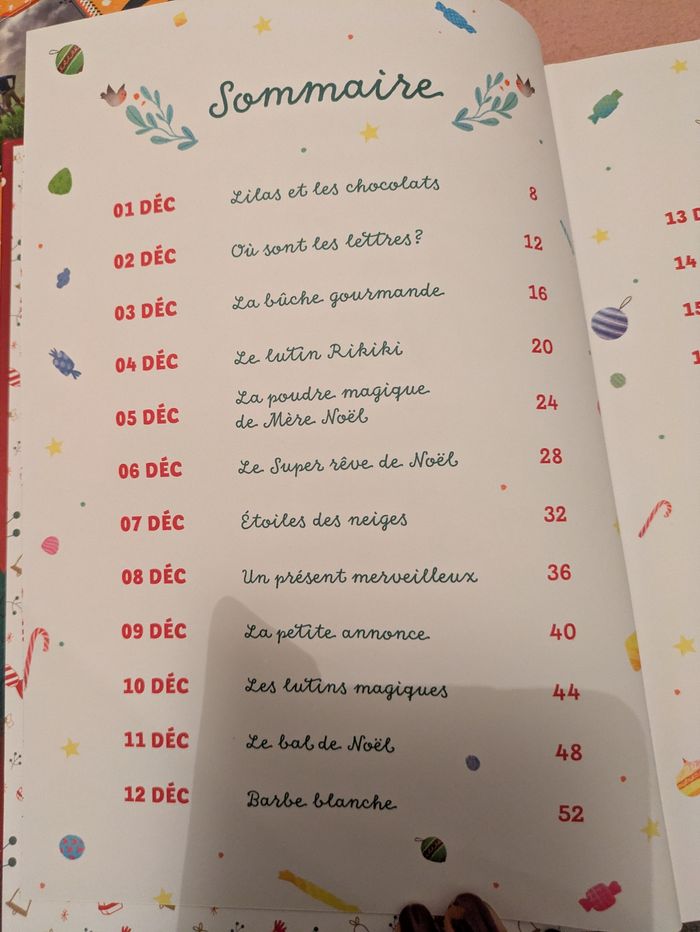 Sommaire
01 DÉC Lilas et les chocolats 8
02 DÉC Où sont les lettres? 12
03 DÉC La bûche gourmande 16
04 DÉC Le lutin Rikiki 20
05 DÉC La poudre magique
de Mère Noël 24
06 DÉC Le Super rêve de Noël 28
07 DÉC Étoiles des neiges 32
08 DÉC Un présent merveilleux 36
09 DÉC La petite annonce 40
10 DÉC Les lutins magiques 44
11 DÉC Le bal de Noël 48
12 DÉC Barbe blanche 52
13
14